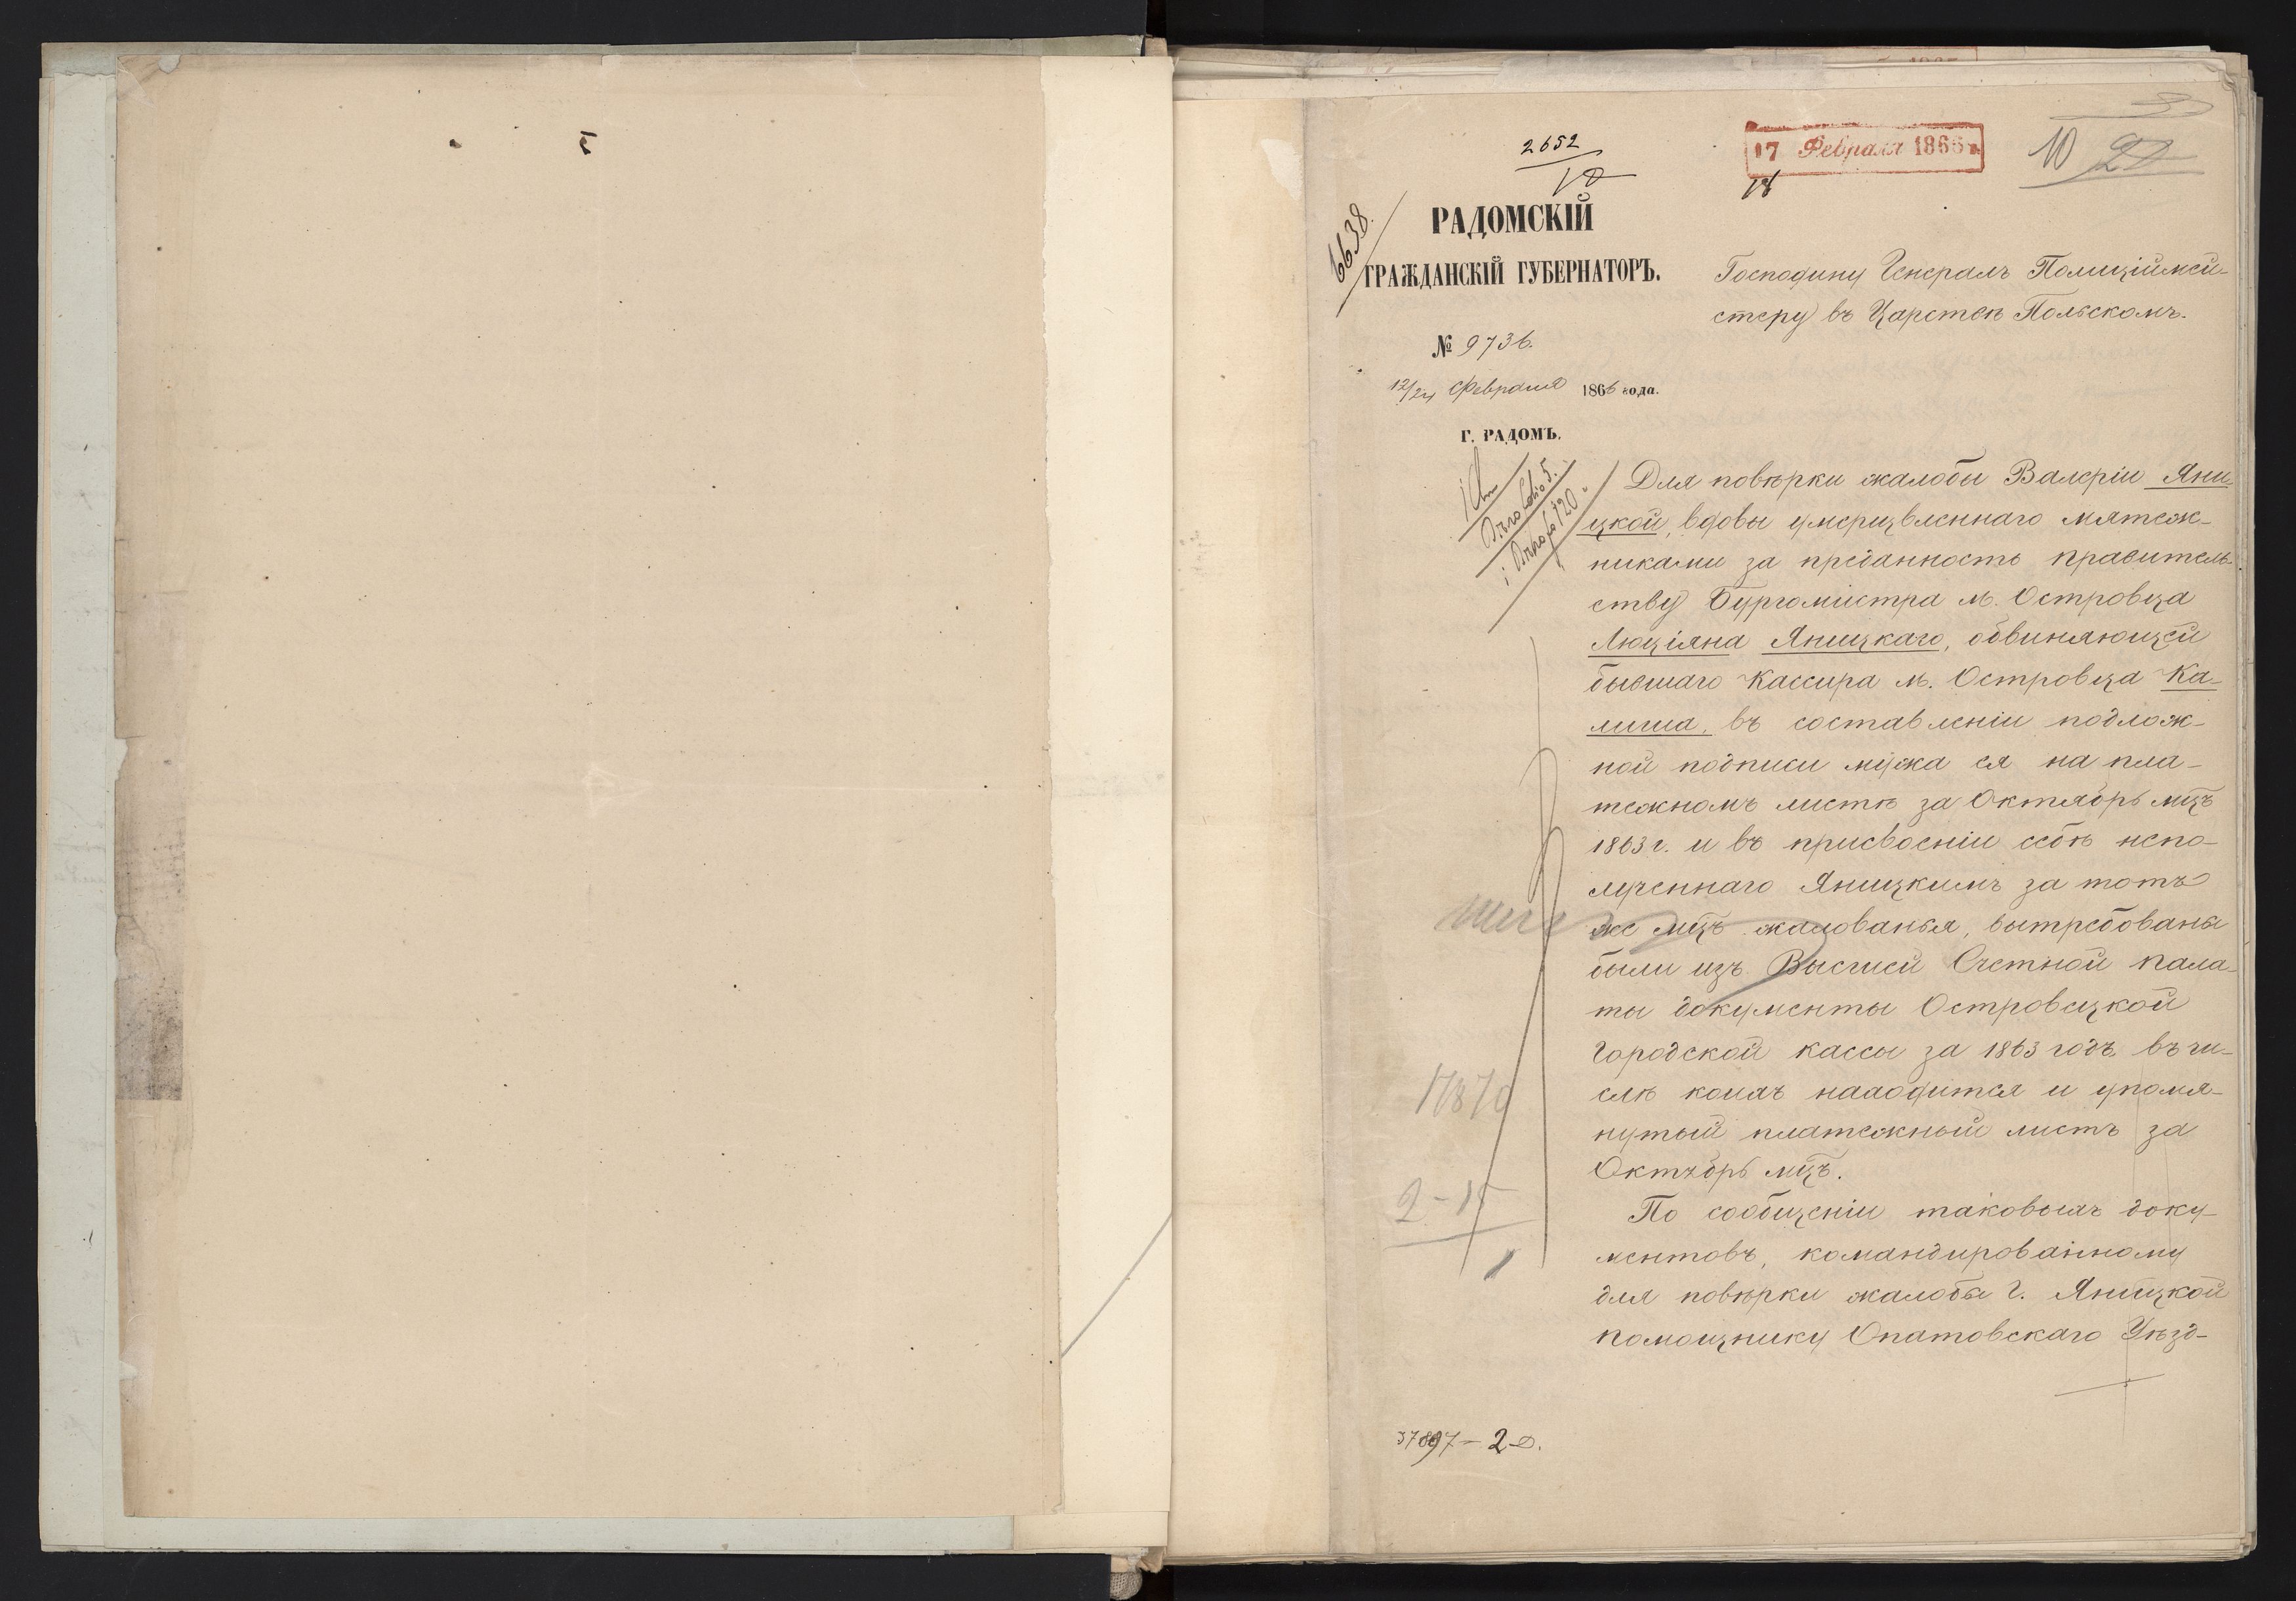 2652
17 Февраля 1866 г.
18
10
6638.
РАДОМСКІЙ
ГРАЖДАНСКІЙ ГУБЕРНАТОРЪ.
№ 9736.
12/24 Февраля 1866 года.
Г. РАДОМЪ.
Господину Генералъ Полиціймей-
стеру въ Царствѣ Польскомъ.
Для повѣрки жалобы Валеріи Яни-
цкой, вдовы умерщвленнаго мятеж-
никами за преданность правитель-
ству Бургомистра м. Островца
Люціяна Яницкаго, обвиняющей
бывшаго Кассира м. Островца Ка-
лиша, въ составленіи подлож-
ной подписи мужа ея на пла-
тежномъ листѣ за Октябрь мцъ
1863 г. и въ присвоеніи себѣ непо-
лученнаго Яницкимъ за тотъ
же мцъ жалованья, вытребованы
были изъ Высшей Счетной пала-
ты документы Островецкой
Городской кассы за 1863 годъ, въ чи-
слѣ коихъ находится и упомя-
нутый платежный листъ за
Октябрь мцъ.
По сообщеніи таковыхъ доку-
ментовъ, командированному
для повѣрки жалобы Г. Яницкой
помощнику Опатовскаго Уѣзд-
17870
2-15
37897-2-